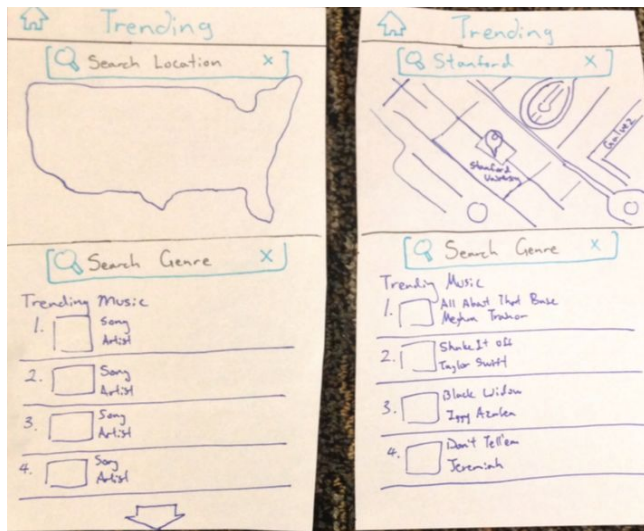 Trending
Search Location X
Search Genre X
Trending Music
1. Song
Artist
2. Song
Artist
3. Song
Artist
4. Song
Artist
Trending
Stanford X
Galvez
Stanford
University
Search Genre X
Trending Music
1. All About That Base
Meghan Trainor
2. Shake It Off
Taylor Swift
3. Black Widow
Iggy Azalea
4. Don't Tell'em
Jeremiah